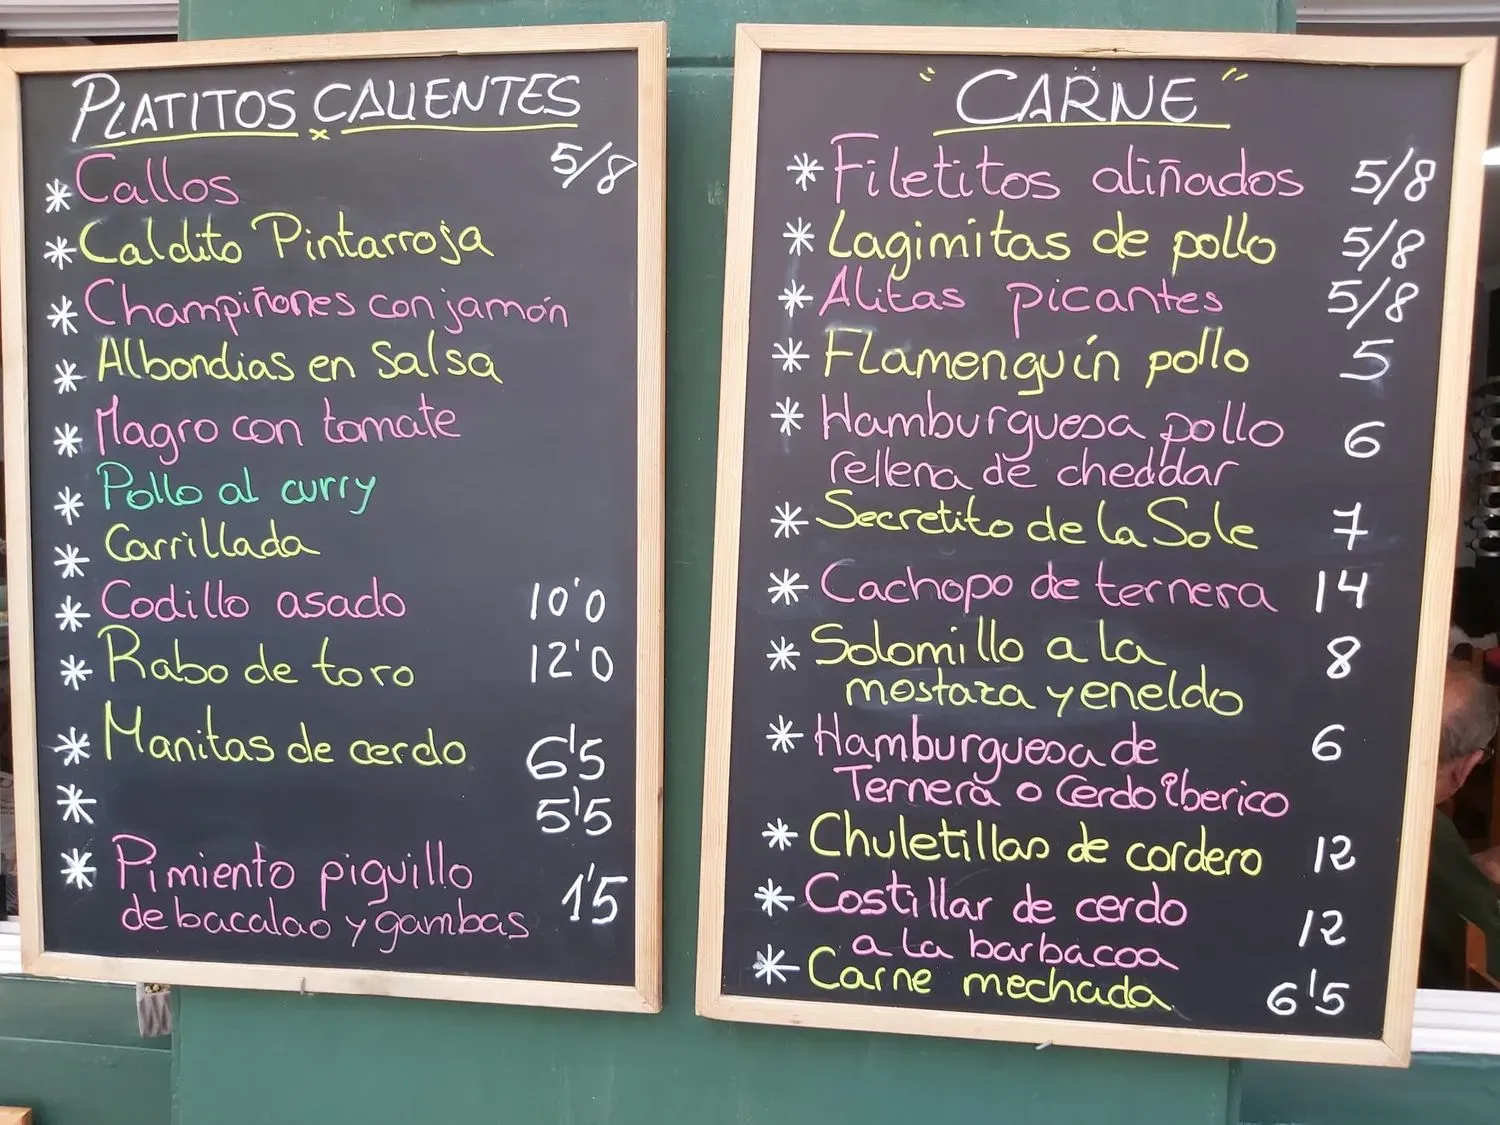 PLATITOS CALIENTES
* Callos 5/8
* Caldito Pintarroja
* Champiñones con jamón
* Albondias en Salsa
* Magro con tomate
* Pollo al curry
* Carrillada
* Codillo asado 10'0
* Rabo de toro 12'0
* Manitas de cerdo 6'5
* 5'5
* Pimiento piquillo 1'5
de bacalao y gambas
"CARNE"
* Filetitos aliñados 5/8
* Lagimitas de pollo 5/8
* Alitas picantes 5/8
* Flamenguín pollo 5
* Hamburguesa pollo 6
rellena de cheddar
* Secretito de la Sole 7
* Cachopo de ternera 14
* Solomillo a la 8
mostaza y eneldo
* Hamburguesa de 6
Ternera o Cerdo iberico
* Chuletillas de cordero 12
* Costillar de cerdo 12
a la barbacoa
* Carne mechada 6'5